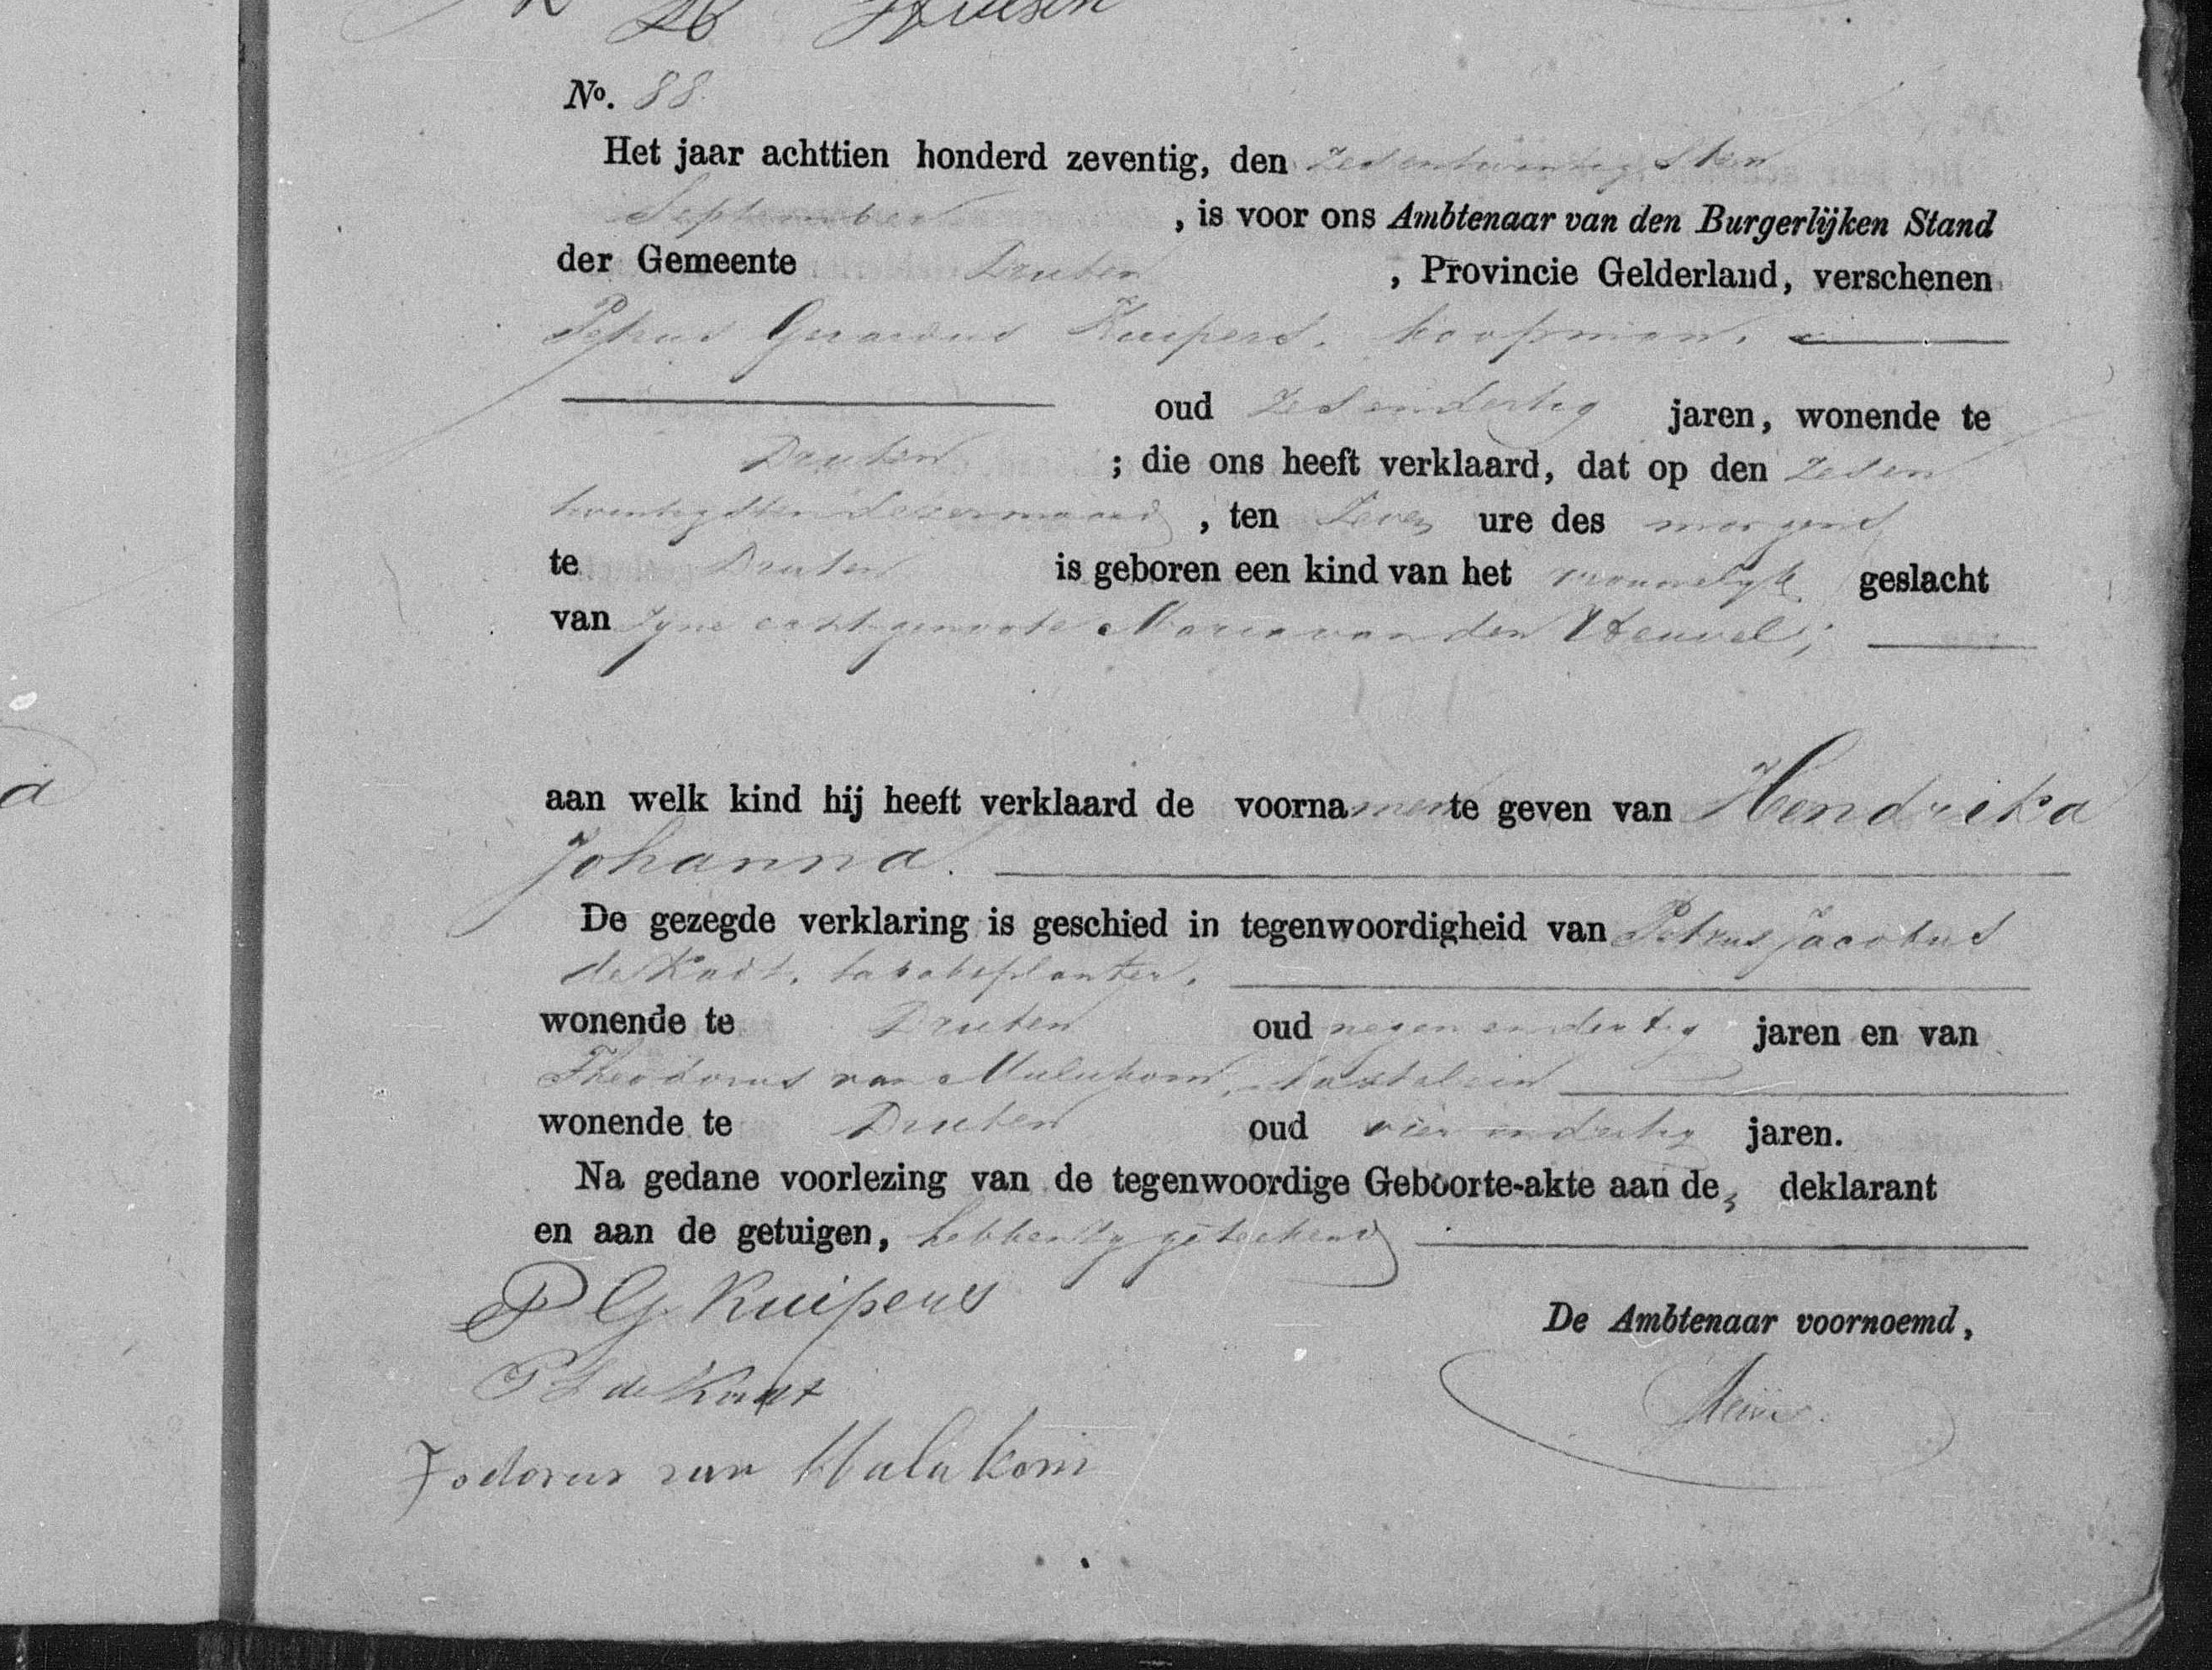 No. 88.
Het jaar achttien honderd zeventig, den zesentwintigsten
September, is voor ons Ambtenaar van den Burgerlijken Stand
der Gemeente Druten, Provincie Gelderland, verschenen
Petrus Gerardus Kuipers, koopman,
oud zesendertig jaren, wonende te
Druten; die ons heeft verklaard, dat op den zesen
twintigsten dezer maand, ten zeven ure des morgens
te Druten is geboren een kind van het vrouwelijk geslacht
van zijne echtgenoote Maria van den Heuvel;
aan welk kind hij heeft verklaard de voornamen te geven van Hendrika
Johanna.
De gezegde verklaring is geschied in tegenwoordigheid van Petrus Jacobus
de Kadt, tabaksplanter,
wonende te Druten oud negenendertig jaren en van
Theodorus van Mulukom, kastelein
wonende te Druten oud vierendertig jaren.
Na gedane voorlezing van de tegenwoordige Geboorte-akte aan de deklarant
en aan de getuigen, hebben zij geteekend
P G Kuipers
De Ambtenaar voornoemd,
P J de Kadt
van Mulukom